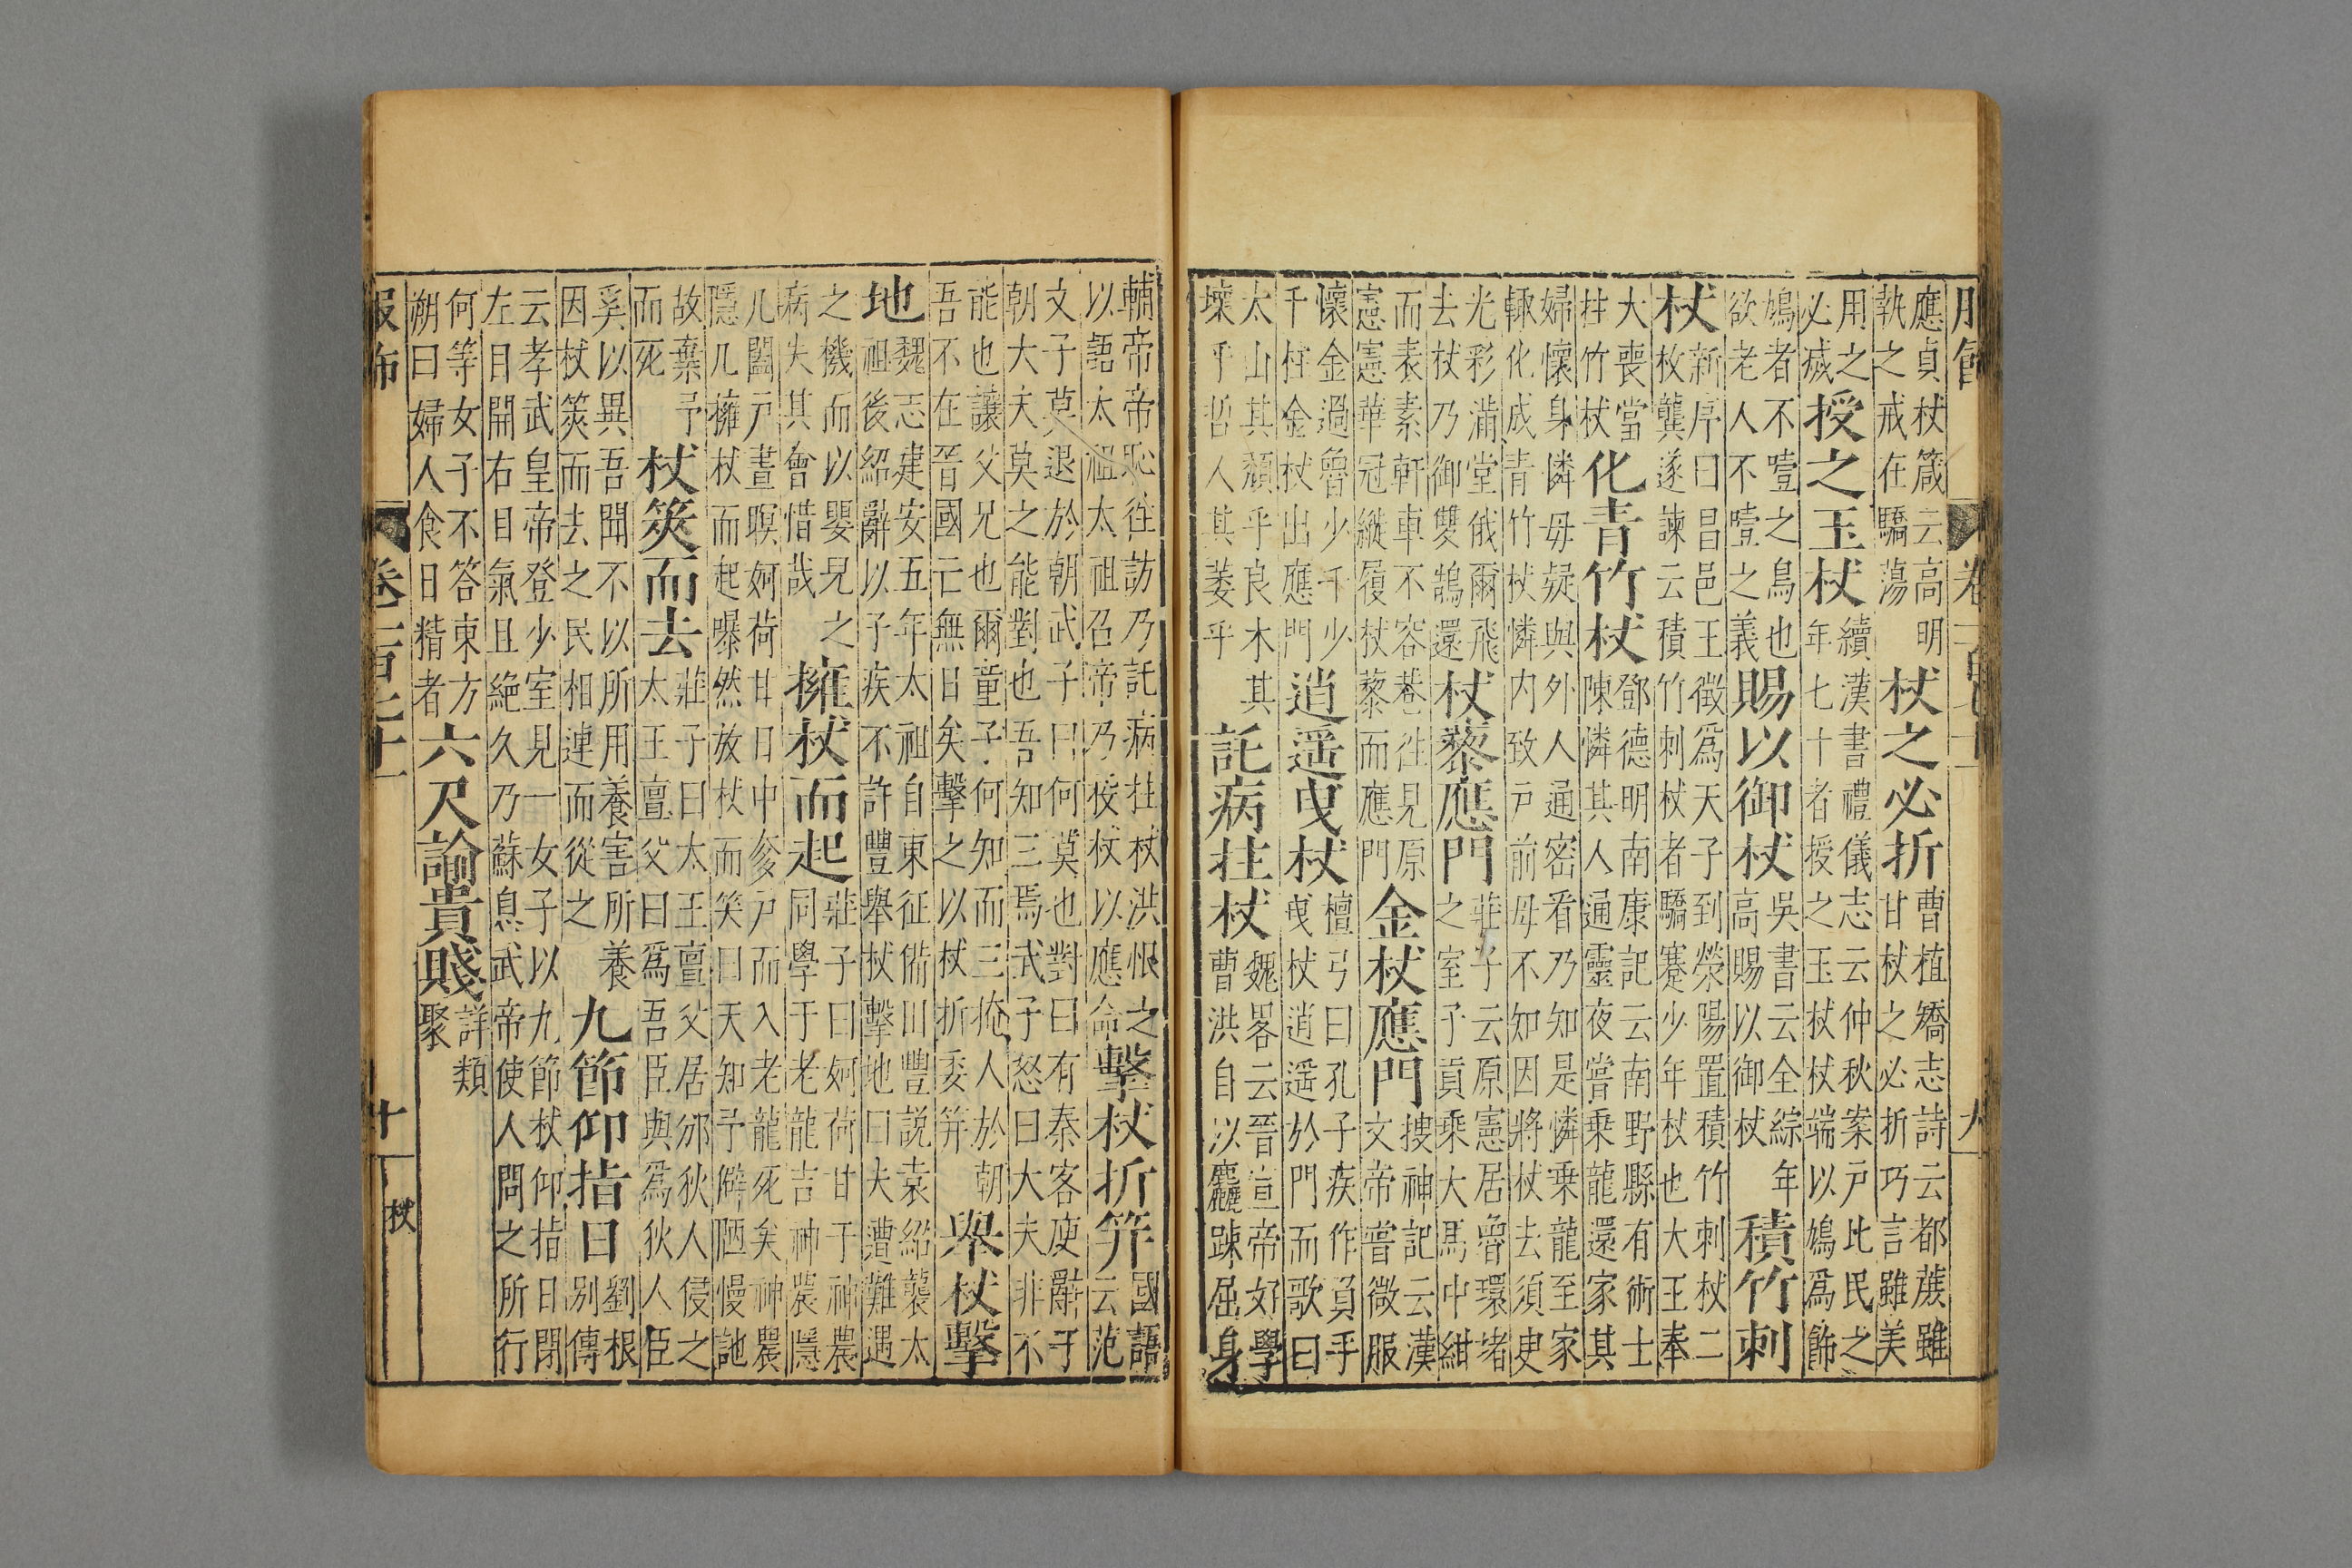 服飾 卷一百 九
應貞杖箴云高明
執之戒在驕蕩
杖之必折
曹植矯志詩云都蔗雖
甘杖之必折巧言雖美
用之
必滅
授之玉杖
續漢書禮儀志云仲秋案戶比民之
年七十者授之玉杖杖端以鳩爲飾
鳩者不噎之鳥也
欲老人不噎之義
賜以御杖
吳書云全綜年
高賜以御杖
積竹刺
杖
新序曰昌邑王徵爲天子到滎陽置積竹刺杖二
枚龔遂諫云積竹刺杖者驕蹇少年杖也大王奉
大喪當
拄竹杖
化青竹杖
鄧德明南康記云南野縣有術士
陳憐其人通靈夜嘗乗龍還家其
婦懷身憐母疑與外人通密看乃知是憐乗龍至家
輙化成青竹杖憐内致戸前母不知因將杖去須史
光彩滿堂俄爾飛
去杖乃御雙鵠還
杖藜應門
莊子云原憲居魯環堵
之室子貢乘大馬中紺
而表素軒車不容巷往見原
憲憲華冠縰履杖藜而應門
金杖應門
搜神記云漢
文帝嘗微服
懷金過魯少千少
千柱金杖出應門
逍遥曳杖
檀弓曰孔子疾作負手
曵杖逍遥於門而歌曰
太山其頹乎良木其
壞乎哲人其萎乎
託病拄杖
魏畧云晉宣帝好學
曹洪自以麤踈屈身
輔帝帝恥往訪乃託病拄杖洪恨之
以語太祖太祖召帝乃投杖以應命
擊杖折笄
國語
云范
文子莫退於朝武子曰何莫也對曰有秦客廋辭于
朝大夫莫之能對也吾知三焉武子怒曰大夫非不
能也讓父兄也爾童子何知而三掩人於朝
吾不在晉國亡無日矣擊之以杖折委笄
舉杖擊
地
魏志建安五年太祖自東征備田豐説袁紹襲太
祖後紹辭以子疾不許豐舉杖擊地曰夫遭難遇
之機而以嬰兒之
病失其會惜哉
擁杖而起
莊子曰妸荷甘于神農
同學于老龍吉神農隱
几闔戸晝瞑妸荷甘日中奓戸而入老龍死矣神農
隱几擁杖而起曝然放杖而笑曰天知予僻陋慢訑
故棄予
而死
杖筴而去
莊子曰太王亶父居邠狄人侵之
太王亶父曰爲吾臣與爲狄人臣
奚以異吾聞不以所用養害所養
因杖筴而去之民相連而從之
九節仰指日
劉根
別傳
云孝武皇帝登少室見一女子以九節杖仰指日閉
左目開右目氣且絶久乃蘇息武帝使人問之所行
何等女子不答東方
朔曰婦人食日精者
六尺諭貴賤
詳類
聚
服飾 卷一百七十一 十 杖